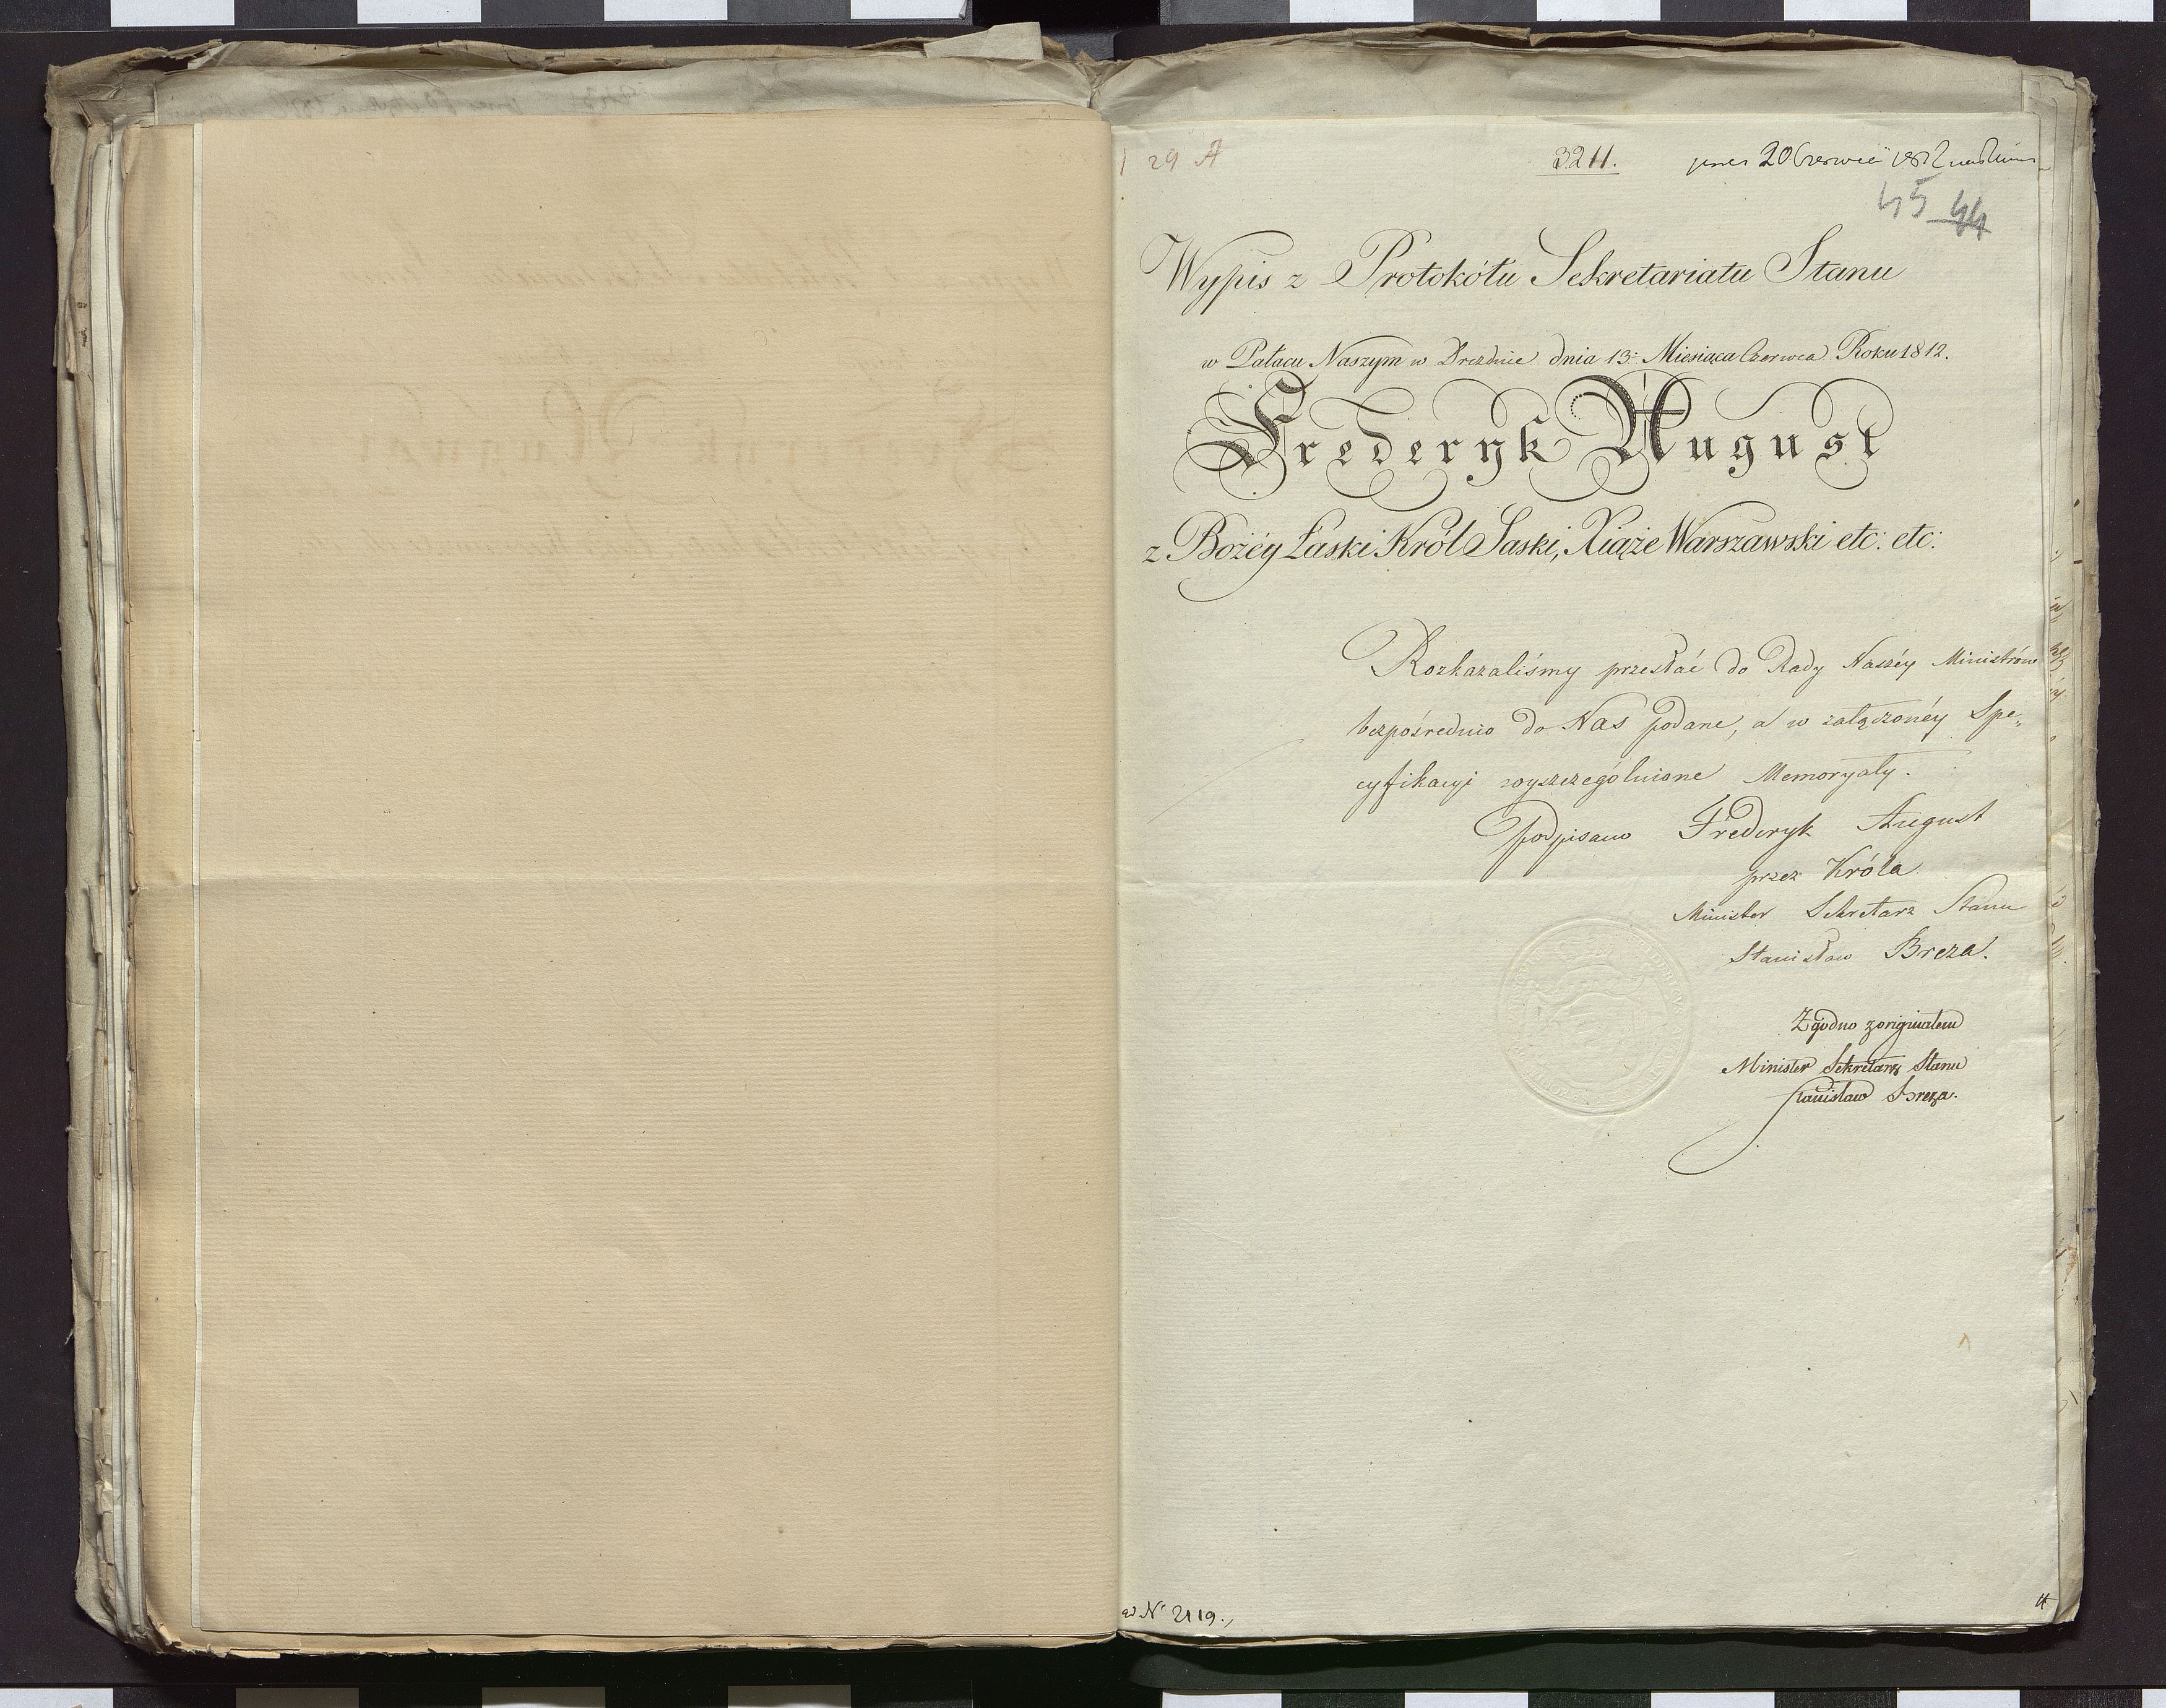 29 A
3211.
praes 20 Czerwca 1812
45 44
Wypis z Protokółu Sekretariatu Stanu
w Pałacu Naszym w Dreźnie dnia 13: Miesiąca Czerwca Roku 1812.
Fryderyk August
z Bożéy Łaski Król Saski, Xiąże Warszawski etc: etc:
Rozkazaliśmy przesłać do Rady Naszéy Ministrów
bezpośrednio do Nas podane, a w załączonéy Spe„
cyfikacyi wyszczególnione Memoryały.
Podpisano Frederyk August
przez Króla
Minister Sekretarz Stanu
Stanisław Breza.
Zgodno z originałem
Minister Sekretarz Stanu
Stanisław Breza.
ad Nº 2119.,